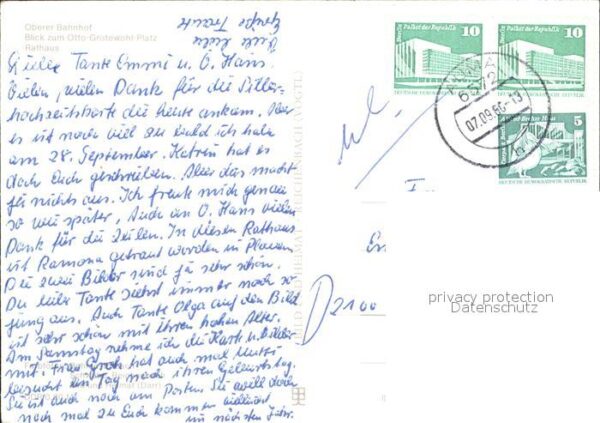 Oberer Bahnhof
Blick zum Otto-Grotewohl-Platz
Rathaus
Viele liebe
Grüße Traute
Liebe Tante Emmi u. O. Hans.
Vielen, vielen Dank für die Silber-
hochzeitskarte die heute ankam. Aber
es ist noch viel zu bald ich hab
am 28. September. Katrin hat es
doch Euch geschrieben. Aber das macht
ja nichts aus. Ich freute mich genau
so wie später, Auch an O. Hans vielen
Dank für die Zeilen. In diesen Rathaus
ist Ramona getraut worden in Plauen
Die zwei Bilder sind ja sehr schön.
Du liebe Tante siehst immer noch so
jung aus. Auch Tante Olga auf den Bild
ist sehr schön mit ihren hohen Alter.
Am Samstag nehme ich die Karte u. Bilder
mit. Frau Groh hat auch mal Mutti
besucht ein Tag nach ihren Geburtstag.
Sie ist auch noch am Posten Sie will doch
noch mal zu Euch kommen vielleicht
im nächsten Jahr.
REICHENBACH (VOGTL)
Berlin Palast der Republik 10
DEUTSCHE DEMOKRATISCHE REPUBLIK
Berlin Palast der Republik 10
DEUTSCHE DEMOKRATISCHE REPUBLIK
5
DEUTSCHE DEMOKRATISCHE REPUBLIK
07.09.
D 2100
privacy protection
Datenschutz